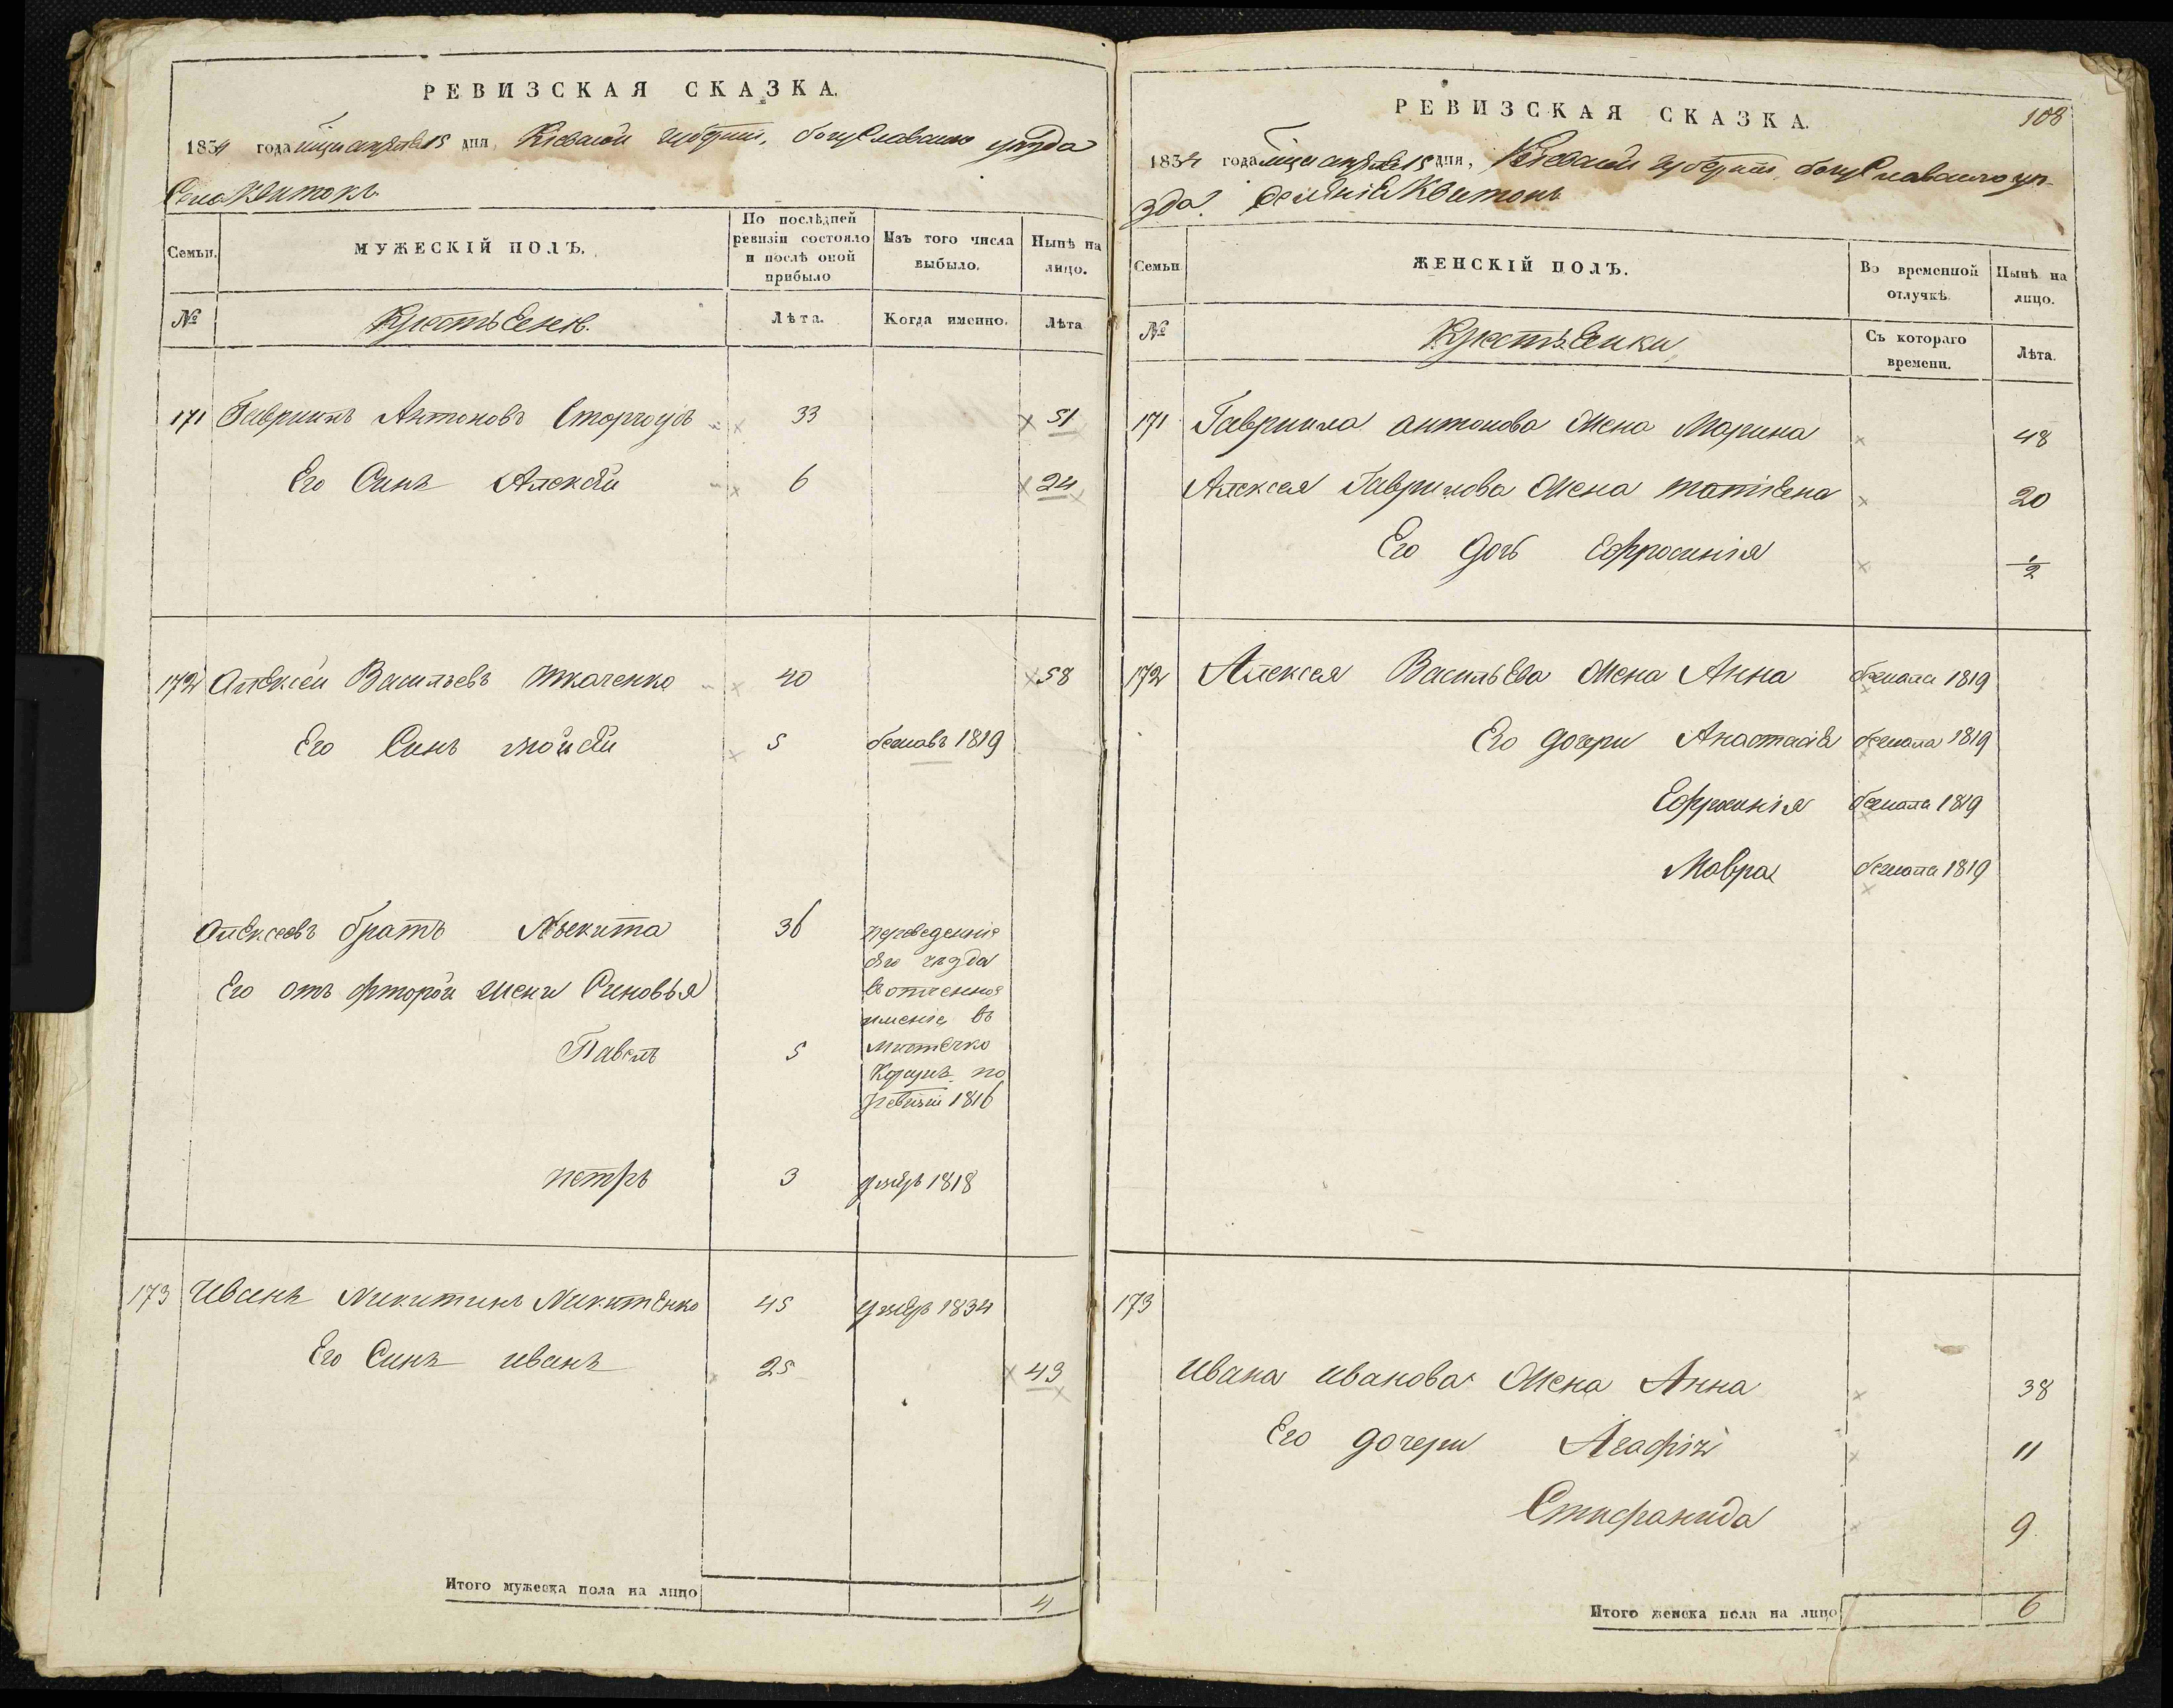 РЕВИЗСКАЯ СКАЗКА.
1834 года мца апреля 15 дня, Кіевской губерніи, богуславского уезда
Села Квитокъ.
Семьи.
МУЖЕСКІЙ ПОЛЪ.
По послѣдней ревизіи состояло и послѣ оной прибыло
Изъ того числа выбыло.
Нынѣ на лицо.
№
Крестьяне.
Лѣта.
Когда именно.
Лѣта
171 Гавриилъ Антоновъ 33 51
Его Синъ Алексѣй 6 24
172 Алексѣй Васильевъ Ткаченко 40 58
Его Синъ Мойсѣй 5 бежавъ 1819
Алексеевъ братъ Никита 36 переведенни
его уезда
Его отъ фторой жени Синовья в отченное
имение въ
Павелъ 5 мистечко
по
ревизіи 1816
петръ 3 умѣръ 1818
173 Иванъ Никитинъ Никитенко 45 умѣръ 1834
Его Синъ иванъ 25 43
Итого мужеска пола на лицо 4
РЕВИЗСКАЯ СКАЗКА.
108
1834 года мца апреля 15 дня, Кіевской губерніи, богуславского уе-
зда. Квитокъ
Семьи
ЖЕНСКІЙ ПОЛЪ.
Во временной отлучкѣ.
Нынѣ на лицо.
№
Крестьянки
Съ котораго времени.
Лѣта.
171 Гавриила антонова Жена Марина 48
Алексея Гаврилова Жена татіяна 20
Его дочъ Ефросинія 1/2
172 Алексея Васильева Жена Анна бежала 1819
Его дочери Анастасія бежала 1819
Ефросинія бежала 1819
Мавра бежала 1819
173
Ивана иванова Жена Анна 38
Его дочери Агафія 11
Стифанида 9
Итого женска пола на лицо 6